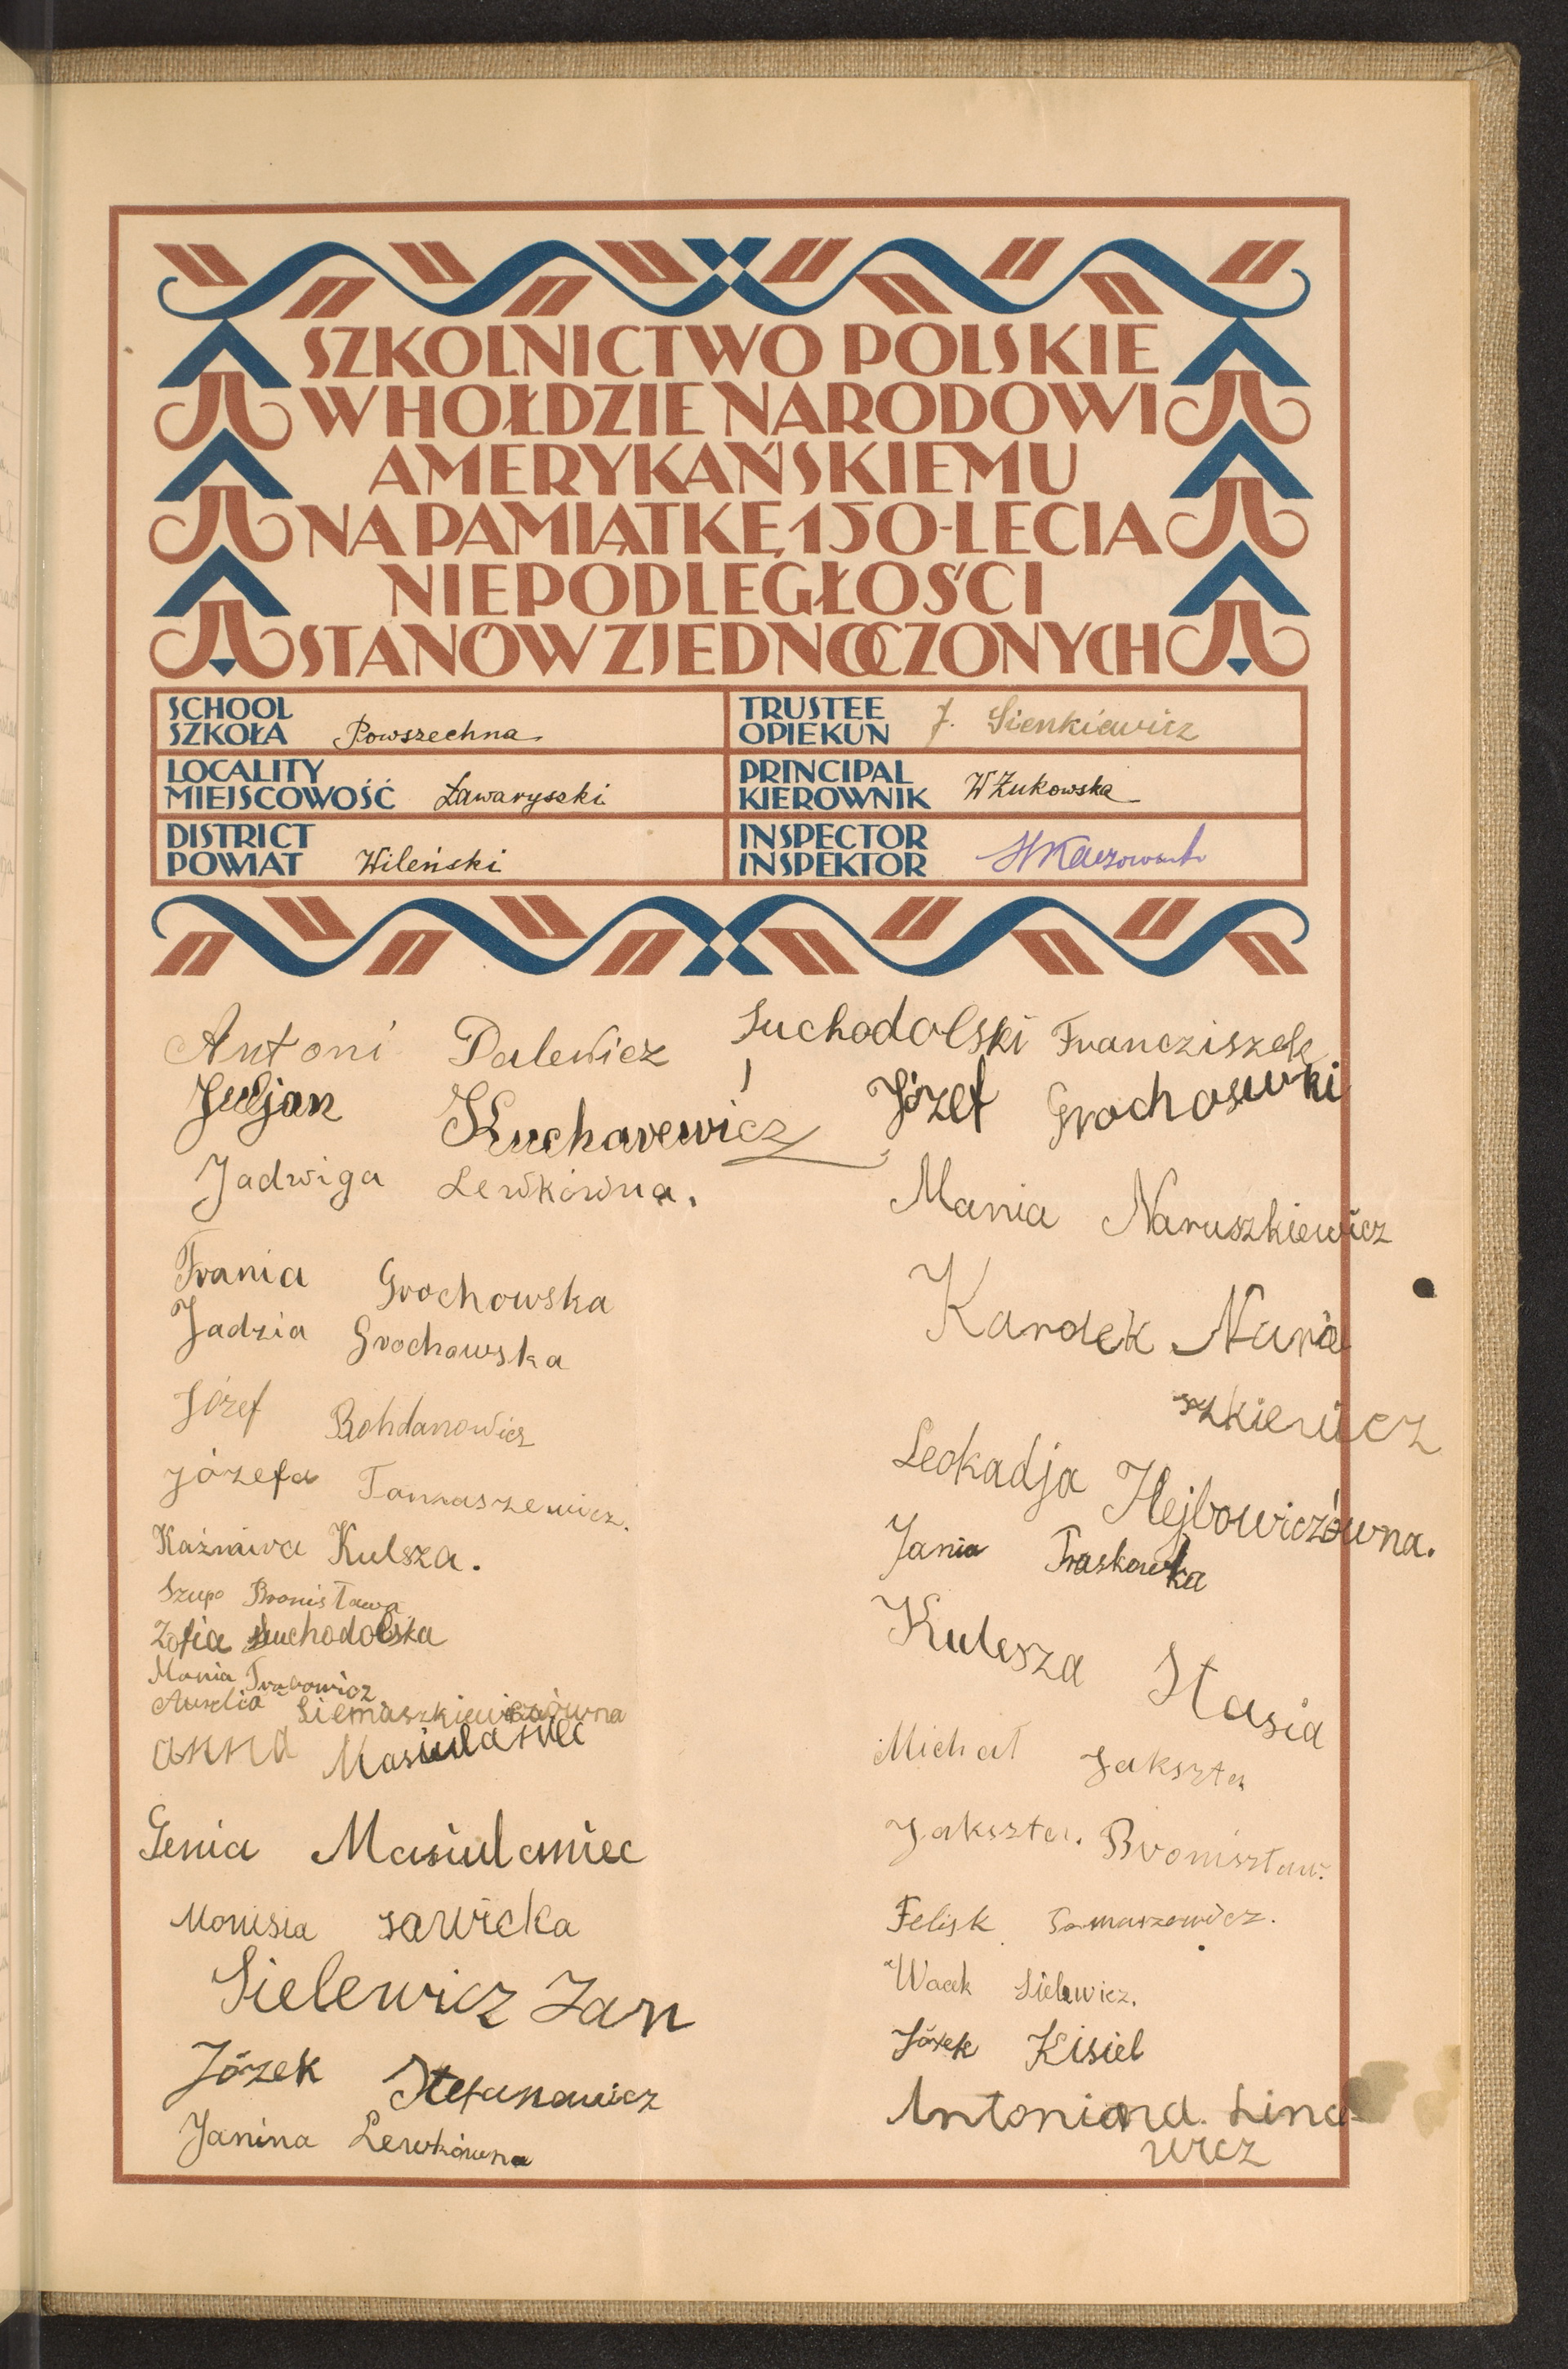 SZKOLNICTWO POLSKIE
W HOŁDZIE NARODOWI
AMERYKAŃSKIEMU
NA PAMIĄTKĘ 150-LECIA
NIEPODLEGŁOŚCI
STANÓW ZJEDNOCZONYCH
SCHOOL
SZKOŁA Powszechna
TRUSTEE
OPIEKUN J. Sienkiewicz
LOCALITY
MIEJSCOWOŚĆ Ławaryszki
PRINCIPAL
KIEROWNIK WŻukowska
DISTRICT
POWIAT Wileński
INSPECTOR
INSPEKTOR
Antoni Dalewicz
Juljan Kucharewicz
Jadwiga Lewkówna.
Frania Grochowska
Jadzia Grochowska
Józef Bohdanowicz
Józefa Tomaszewicz.
Kaźmira Kulsza.
Szupo Bronisława
Zofia Suchodolska
Mania
Aurelia Siemaszkiewiczówna
anna Masiulaniec
Genia Masiulaniec
Monisia sawicka
Sielewicz Jan
Józek Stefanowicz
Janina Lewkówna
Suchodolski Franciszek
Józef Grochoswki
Mania Naruszkiewicz
Karolek Naru
szkiewicz
Leokadja Hejbowiczówna.
Jania Fraskowka
Kulesza Stasia
Michał Jakszta
Jakszta. Bronisztaw.
Felisk Tomaszewicz.
Wacek Sielewicz.
Józek Kisiel
Lino
wicz